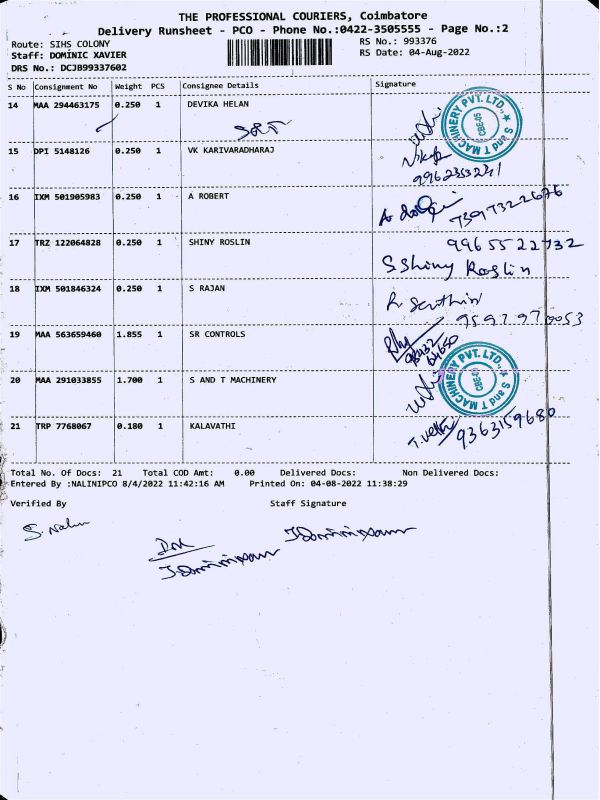 THE PROFESSIONAL COURIERS, Coimbatore
Delivery Runsheet - PCO - Phone No.:0422-3505555 - Page No.:2
Route: SIHS COLONY RS No.: 993376
Staff: DOMINIC XAVIER RS Date: 04-Aug-2022
DRS No.: DCJB99337602
S No Consignment No Weight PCS Consignee Details Signature
14 MAA 294463175 0.250 1 DEVIKA HELAN
S and T MACHINERY PVT. LTD., ★ CBE-05
15 DPI 5148126 0.250 1 VK KARIVARADHARAJ
16 IXM 501905983 0.250 1 A ROBERT
7397322676
17 TRZ 122064828 0.250 1 SHINY ROSLIN 9965522732
S Shiny Roslin
18 IXM 501846324 0.250 1 S RAJAN
19 MAA 563659460 1.855 1 SR CONTROLS
20 MAA 291033855 1.700 1 S AND T MACHINERY
S and T MACHINERY PVT. LTD., ★ CBE-05
21 TRP 7768067 0.180 1 KALAVATHI 9363159680
Total No. Of Docs: 21 Total COD Amt: 0.00 Delivered Docs: Non Delivered Docs:
Entered By :NALINIPCO 8/4/2022 11:42:16 AM Printed On: 04-08-2022 11:38:29
Verified By Staff Signature